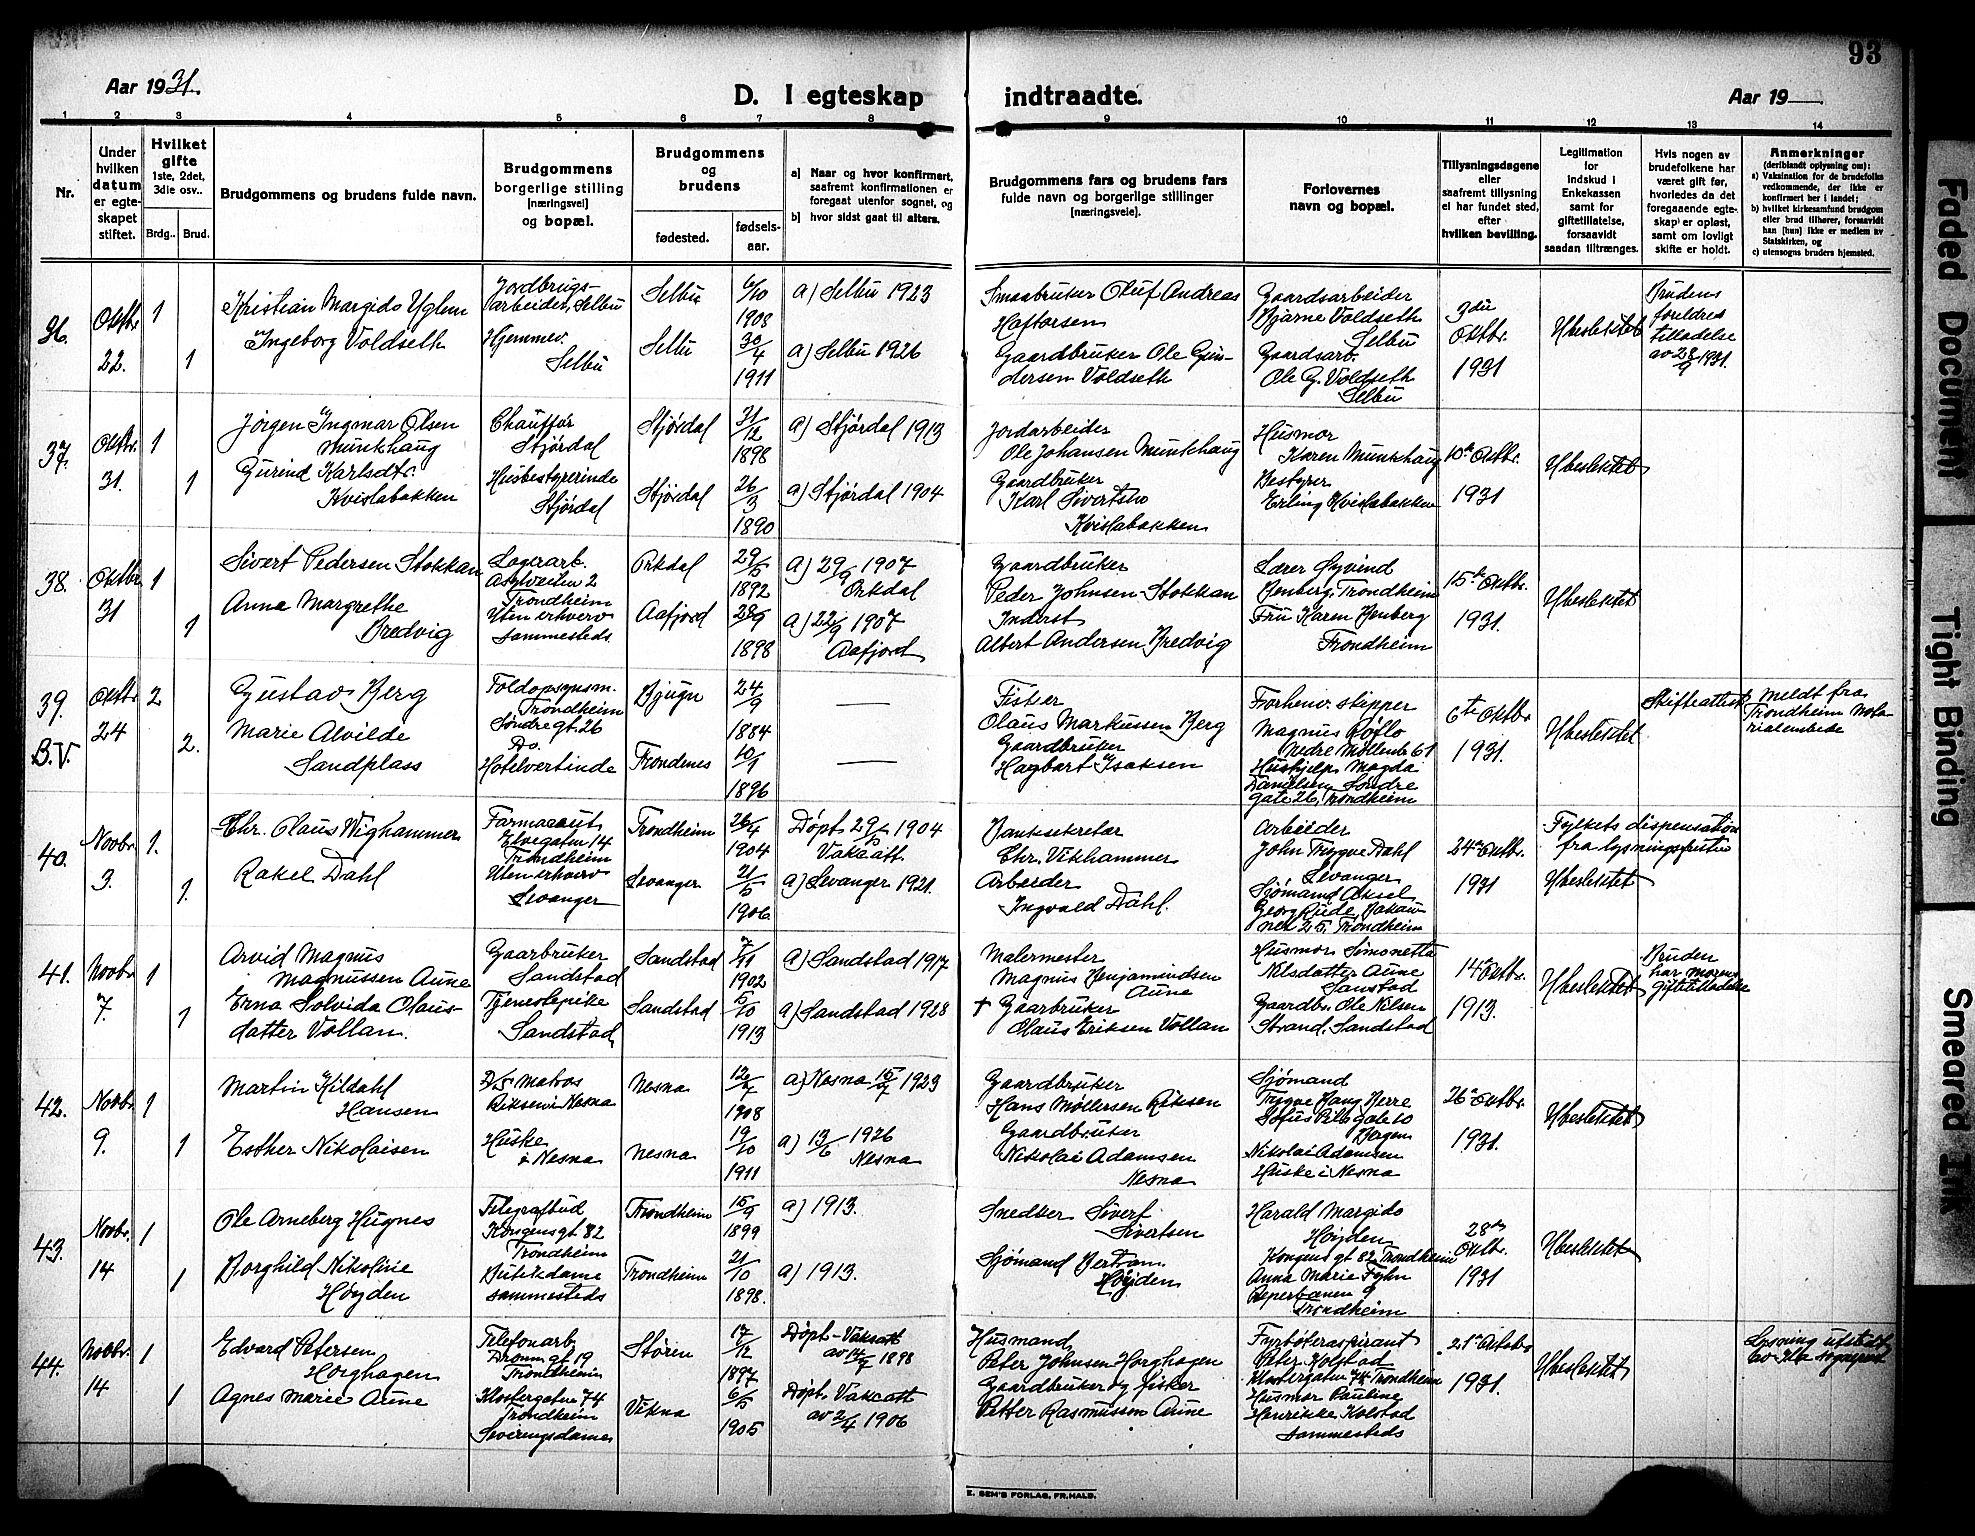 93
Aar 1931.
D. I egteskap indtraadte.
Aar 19
1 2 3 4 5 6 7 8 9 10 11 12 13 14
Nr.
Under hvilken datum er egte-skapet stiftet.
Hvilket gifte 1ste, 2det, 3die osv..
Brdg.. Brud.
Brudgommens og brudens fulde navn.
Brudgommens borgerlige stilling [næringsvei] og bopæl.
Brudgommens og brudens
fødested.
fødsels-aar.
a) Naar og hvor konfirmert, saafremt konfirmationen er foregaat utenfor sognet, og
b) hvor sidst gaat til alters.
Brudgommens fars og brudens fars fulde navn og borgerlige stillinger [næringsveie].
Forlovernes navn og bopæl.
Tillysningsdagene eller saafremt tillysning ei har fundet sted, efter hvilken bevilling.
Legitimation for indskud i Enkekassen samt for giftetillatelse, forsaavidt saadan tiltrænges.
Hvis nogen av brudefolkene har været gift før, hvorledes da det foregaaende egte-skap er opløst, samt om lovligt skifte er holdt.
Anmerkninger (deriblandt oplysning om):
a) Vaksination for de brudefolks vedkommende, der ikke er konfirmert her i landet;
b) hvilket kirkesamfund brudgom eller brud tilhører, forsaavidt han [hun] ikke er medlem av Statskirken, og
c) utensogns bruders hjemsted.
36. Oktbr. 22. 1 1
Kristian Margido Uglem
Ingeborg Voldseth
Jordbrugs-
arbeider, Selbu
Hjemmev.
Selbu
Selbu 6/10 1908
Selbu 30/4 1911
a) Selbu 1923
a) Selbu 1926
Smaabruker Oluf Andreas
Haftorsen
Gaardbruker Ole Gun-
dersen Voldseth
Gaardsarbeider
Bjarne Voldseth
Selbu
Gaardsarb.
Ole G. Voldseth
Selbu
3die
Oktbr.
1931
Ubeslektet
Brudens
foreldres
tilladelse
av 28/9 1931.
37. Oktbr. 31. 1 1
Jörgen Ingmar Olsen
Munkhaug
Gurind Karlsdtr.
Kvislabakken
Chauffør
Stjørdal
Husbestyrerinde
Stjørdal
Stjørdal 31/12 1898
Stjørdal 26/3 1890
a) Stjørdal 1913
a) Stjørdal 1904
Jordarbeider
Ole Johansen Munkhaug
Gaardbruker
Karl Sivertsen
Kvislabakken
Husmor
Karen Munkhaug
Bestyrer
Erling Kvislabakken
10de Oktbr.
1931
Ubeslektet
38. Oktbr. 31 1 1
Sivert Pedersen Stokkan
Anna Margrethe
Bredvig
Lagerarb.
Asylveiten 2
Trondheim
Uten erhverv
sammesteds
Orkdal 29/5 1892
Aafjord 28/9 1898
a) 29/9 1907
Orkdal
a) 22/9 1907
Aafjord
Gaardbruker
Peder Johnsen Stokkan
Inderst
Albert Andersen Bredvig
Lærer Øyvind
Benberg, Trondheim
Fru Karen Benberg
Trondheim
15de Oktbr.
1931.
Ubeslektet
39. B.V. Oktbr. 24 2 2.
Gustav Berg
Marie Alvilde
Sandplass
Foldopsynsm.
Trondheim
Søndre gt. 26
Do.
Hotelvertinde
Bjugn 24/9 1884
Trondenes 10/1 1896
Fisker
Olaus Markussen Berg
Gaardbruker
Hagbart Isaksen
Forhenv. skipper
Magnus Røflo
Nedre Møllenb 61
Hushjelp Magda
Danielsen Søndre
gate 26, Trondheim
6te Oktbr
1931.
Ubeslektet
Skifteattest
Meldt fra
Trondheim Nota-
rialembede
40. Novbr. 3. 1. 1.
Chr. Olaus Wighammer
Rakel Dahl
Farmaceut
Elvegaten 14
Trondheim
Uten erhverv
Levanger
Trondheim 26/4 1904
Levanger 21/5 1906
Døpt 29/5 1904
Vakc.att.
a) Levanger 1921.
Banksekretær
Chr. Vikhammer
Arbeider
Ingvald Dahl.
Arbeider
John Trygve Dahl
Levanger
Sjømand Aksel
Georg Rude, Bakau-
nel 25, Trondheim
24de Oktbr.
1931
Fylkets dispensation
fra lysningsfristen
Ubeslektet
41. Novbr 7. 1 1
Arvid Magnus
Magnussen Aune
Erna Solvida Olaus-
datter Vollan.
Gaarbruker
Sandstad
Tjenestepike
Sandstad
Sandstad 7/11 1902
Sandstad 5/10 1913
a) Sandstad 1917
a) Sandstad 1928
Malermester
Magnus Benjaminsen
Aune
† Gaarbruker
Olaus Eriksen Vollan
Husmor Simonetta
Nilsdatter Aune
Sanstad
Gaardbr. Ole Nilsen
Strand, Sandstad
14de Oktbr.
1913.
Ubeslektet
Bruden
har morens
giftetilladelse
42. Novbr 9. 1 1
Martin Kildahl
Hansen
Esther Nikolaisen
D/S matros
Riksem i Nesna
Huske
i Nesna
Nesna 12/7 1908
Nesna 19/10 1911
a) Nesna 15/7 1923
a) 13/6 1926
Nesna
Gaardbruker
Hans Møllersen Riksen
Gaardbruker
Nikolai Adamsen
Nesna
Sjömand
Trygve Haug Berre
Sofus Pils gate 10
Bergen
Nikolai Adamsen
Huske i Nesna
26de Oktbr.
1931.
Ubeslektet
43. Novbr. 14 1 1
Ole Arneberg Hugnes
Borghild Nikoline
Høyden
Telegrafbud
Kongensgt 82
Trondheim
Butikdame
sammesteds
Trondheim 15/9 1899
Trondheim 21/10 1898.
a) 1913.
a) 1913.
Snedker Sivert
Sivertsen
Sjømand Bertram
Høyden
Harald Margido
Høyden
Kongens gt 82 Trondheim
Anna Marie Fyhn
Reperbanen 9
Trondheim
28de
Oktbr.
1931
Ubeslektet
44. Novbr. 14 1 1
Edvard Petersen
Horghagen
Agnes Marie Aune
Telefonarb
Dronn gt 19
Trondheim
Klostergaten 74
Trondheim
Serveringsdame
Støren 17/12 1897
Vikna 6/5 1905
Døpt- Vakcatt
av 14/7 1898
Døpt. Vakcatt
av 2/4 1906
Husmand
Peter Johnsen Horghagen
Gaardbruker og fisker
Petter Rasmussen Aune
Fyrbøteraspirant
Peter Kolstad
Klostergaten 74 Trondheim
Husmor Pauline
Henrikke Kolstad
sammesteds
21de Oktober
1931.
Ubeslektet
Lysning utstedt
av Ile sogneprest
E. SEM'S FORLAG, FR.HALD.
Faded Document
Tight Binding
Smeared Ink